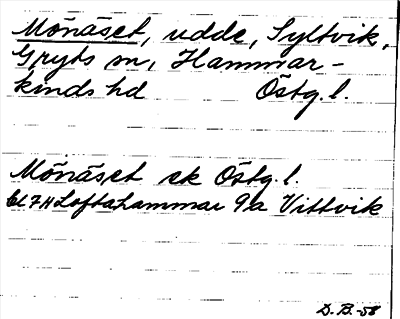 Mönäset, udde, Syltvik,
Gryts sn, Hammar-
kinds hd Östg. l.
Mönäset ek Östg. l.
bl 7H Loftahammar 9a Vittvik
D. B. -58